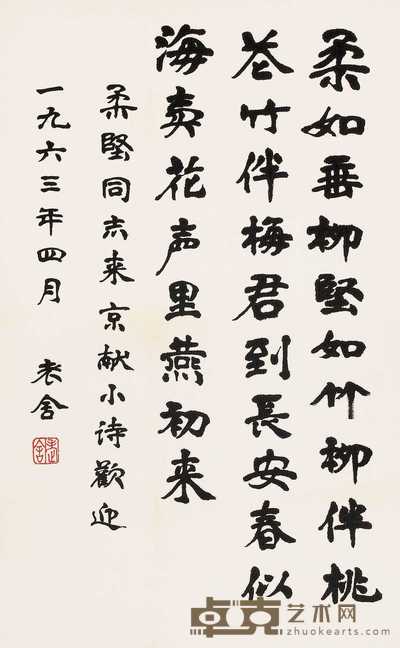 柔如垂柳堅如竹柳伴桃
花竹伴梅君到長安春似
海卖花声里燕初来
柔堅同志来京献小诗歡迎
一九六三年四月 老舍
老舍
卓克艺术网
zhuokearts.com